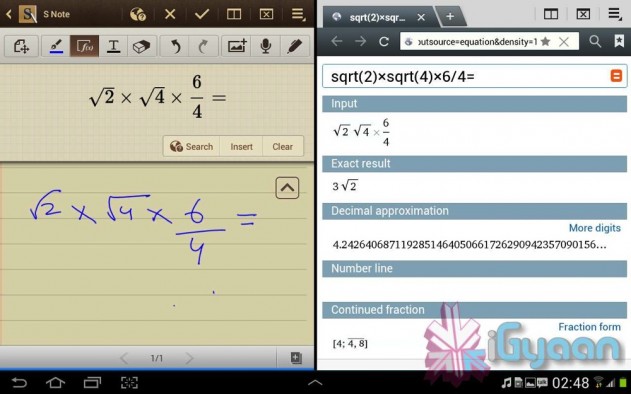 S Note
√2 × √4 × 6/4 =
Search Insert Clear
√2 × √4 × 6/4 =
1/1
sqrt(2)×sqr...
outsource=equation&density=1
sqrt(2)×sqrt(4)×6/4=
Input
√2 √4 × 6/4
Exact result
3 √2
Decimal approximation
More digits
4.2426406871192851464050661726290942357090156...
Number line
Continued fraction
Fraction form
[4; 4, 8]
iGyaan
02:48